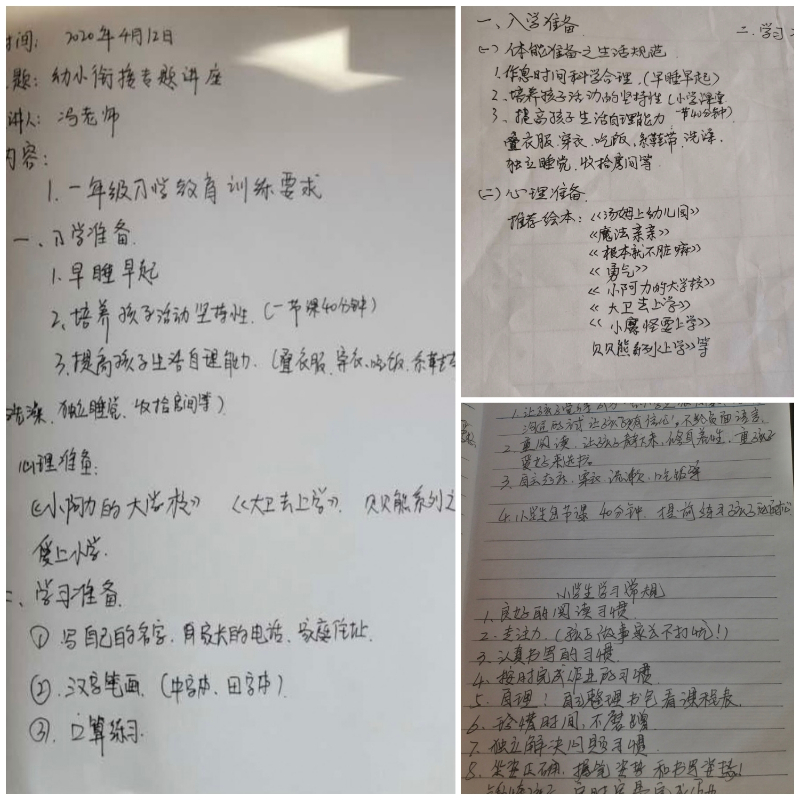 时间: 2020年4月12日
题: 幼小衔接专题讲座
讲人: 冯老师
内容:
1. 一年级入学教育训练要求
一、入学准备.
1. 早睡早起
2、培养孩子活动坚持性.(一节课40分钟)
3.提高孩子生活自理能力.(叠衣服、穿衣、吃饭、系鞋带
洗澡、独立睡觉、收拾房间等)
心理准备:
《小阿力的大学校》 《大卫去上学》. 贝贝熊系列之
爱上小学.
二、学习准备.
① 写自己的名字.用家长的电话、家庭住址.
②.汉字笔画.(生字本、田字本).
③. 口算练习.
一、入学准备.
(一) 体能准备之生活规范
1.作息时间科学合理.(早睡早起)
2、培养孩子活动的坚持性(小学课堂
一节40分钟)
3、提高孩子生活自理能力
叠衣服.穿衣.吃饭.系鞋带.洗澡.
独立睡觉.收拾房间等.
(二)心理准备.
推荐绘本:《汤姆上幼儿园》
《魔法亲亲》
《根本就不脏嘛》
《勇气》
《小阿力的大学校》
《大卫去上学》
《小魔怪要上学》
贝贝熊系列《上学》等
二.学习
2. 重阅读.让孩子
3.
4.小学生每节课40分钟.提前练习孩子
小学生学习常规
1.良好的阅读习惯.
2.专注力.(孩子做事家长不打扰!)
3.认真书写的习惯.
4.按时完成作业的习惯.
5.自理!自己整理书包看课程表.
6.珍惜时间,不磨蹭.
7.独立解决问题习惯.
8.坐姿正确,握笔姿势和书写姿势!